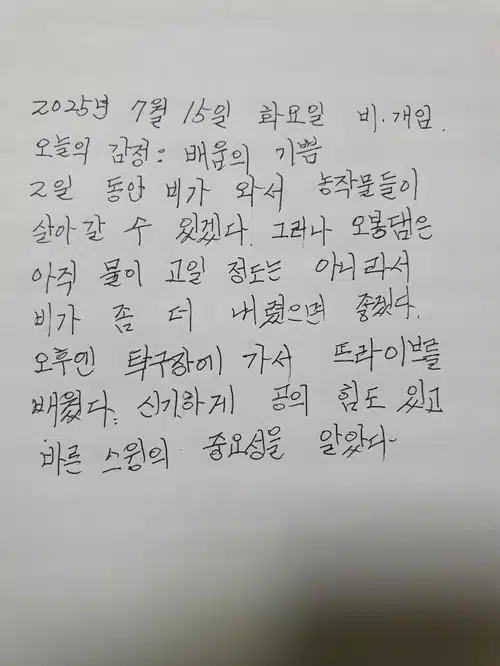 2025년 7월 15일 화요일 비.개임.
오늘의 감정: 배움의 기쁨
2일 동안 비가 와서 농작물들이
살아갈 수 있겠다. 그러나 오봉댐은
아직 물이 고일 정도는 아니라서
비가 좀 더 내렸으면 좋겠다.
오후엔 탁구장에 가서 뜨라이브를
배웠다. 신기하게 공의 힘도 있고
바른 스윙의 중요성을 알았다~